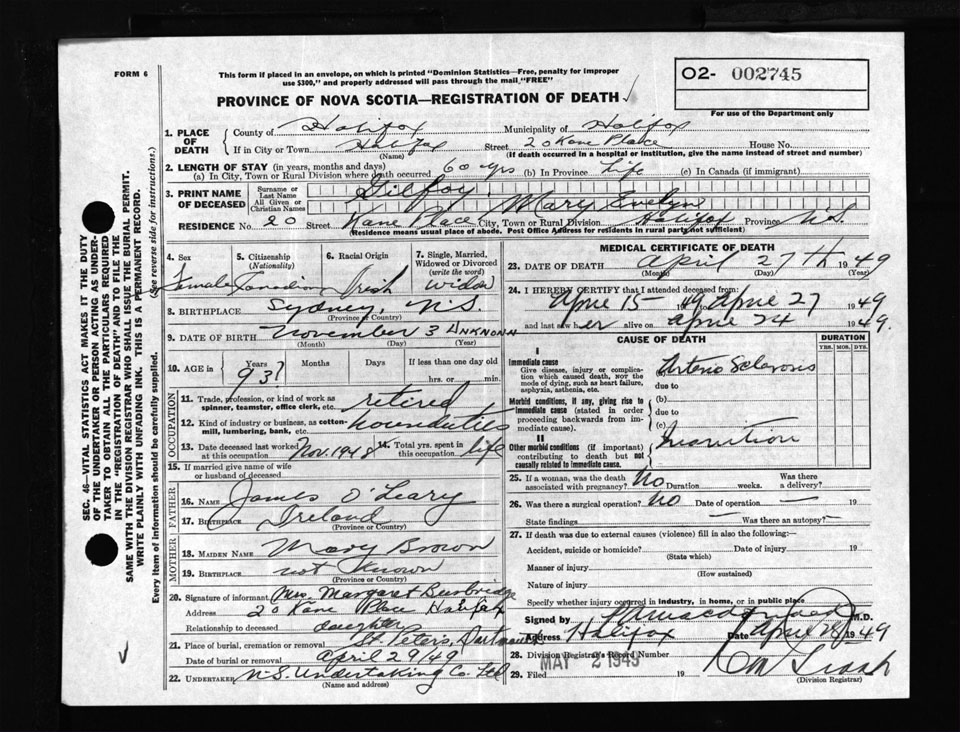 FORM 6
This form if placed in an envelope, on which is printed "Dominion Statistics—Free, penalty for improper
use $300," and properly addressed will pass through the mail "FREE"
O2- 002745
PROVINCE OF NOVA SCOTIA—REGISTRATION OF DEATH
For use of the Department only
1. PLACE OF DEATH
County of Halifax Municipality of Halifax
If in City or Town Halifax Street 20 Kane Place House No.
(Name) (If death occurred in a hospital or institution, give the name instead of street and number)
2. LENGTH OF STAY (in years, months and days)
(a) In City, Town or Rural Division where death occurred 60 yrs (b) In Province Life (c) In Canada (if immigrant)
3. PRINT NAME OF DECEASED
Surname or Last Name Gilfoy
All Given or Christian Names Mary Evelyn
RESIDENCE No. 20 Street Kane Place City, Town or Rural Division Halifax Province N.S.
(Residence means usual place of abode. Post Office Address for residents in rural parts not sufficient)
4. Sex
Female
5. Citizenship
(Nationality)
Canadian
6. Racial Origin
Irish
7. Single, Married, Widowed or Divorced
(write the word)
widow
8. BIRTHPLACE Sydney, N.S.
(Province or Country)
9. DATE OF BIRTH November 3 Unknown
(Month) (Day) (Year)
10. AGE in
Years Months Days If less than one day old
93? hrs. or min.
OCCUPATION
11. Trade, profession, or kind of work as
spinner, teamster, office clerk, etc. retired
12. Kind of industry or business, as cotton-
mill, lumbering, bank, etc.
13. Date deceased last worked at this occupation Nov. 1948
14. Total yrs. spent in this occupation life
15. If married give name of wife
or husband of deceased
FATHER
16. NAME James O'Leary
17. BIRTHPLACE Ireland
(Province or Country)
MOTHER
18. MAIDEN NAME Mary Brown
19. BIRTHPLACE not known
(Province or Country)
20. Signature of informant Mrs. Margaret Burbridge
Address 20 Kane Place Halifax
Relationship to deceased daughter
21. Place of burial, cremation or removal St. Peters, Dartmouth
Date of burial or removal April 29/49
22. UNDERTAKER N.S. Undertaking Co. Ltd
(Name and address)
MEDICAL CERTIFICATE OF DEATH
23. DATE OF DEATH April 27th 1949
(Month) (Day) (Year)
24. I HEREBY CERTIFY that I attended deceased from:
April 15 49 to April 27 1949
and last saw her alive on April 24 1949.
CAUSE OF DEATH
DURATION
YRS. MOS. DYS.
I
Immediate cause
Give disease, injury or complica-
tion which caused death, NOT the
mode of dying, such as heart failure,
asphyxia, asthenia, etc.
(a) Arterio Sclerosis
due to
Morbid conditions, if any, giving rise to
immediate cause (stated in order
proceeding backwards from im-
mediate cause).
(b)
due to
(c) Inanition
II
Other morbid conditions (if important)
contributing to death but not
causally related to immediate cause.
25. If a woman, was the death No Was there
associated with pregnancy? Duration weeks. a delivery?
26. Was there a surgical operation? No Date of operation 19
State findings Was there an autopsy?
27. If death was due to external causes (violence) fill in also the following:—
Accident, suicide or homicide? Date of injury 19
(State which)
Manner of injury
(How sustained)
Nature of injury
Specify whether injury occurred in industry, in home, or in public place
Signed by M.D.
Address Halifax Date April 28 1949
28. Division Registrar's Record Number
MAY 2 1949
29. Filed 19
(Division Registrar)
SEC. 46—VITAL STATISTICS ACT MAKES IT THE DUTY
OF THE UNDERTAKER OR PERSON ACTING AS UNDER-
TAKER TO OBTAIN ALL THE PARTICULARS REQUIRED
IN THE "REGISTRATION OF DEATH" AND TO FILE THE
SAME WITH THE DIVISION REGISTRAR WHO SHALL ISSUE THE BURIAL PERMIT.
WRITE PLAINLY WITH UNFADING INK. THIS IS A PERMANENT RECORD.
Every item of information should be carefully supplied.
(See reverse side for instructions.)